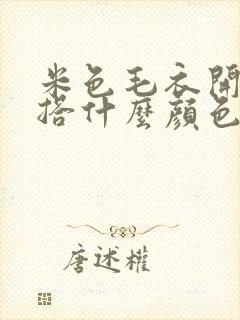 米色毛衣開
搭什麼顏色
唐述權